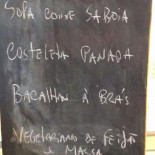 SOPA COUVE SABOIA
COSTELETA PANADA
BACALHAU À BRÁS
VEGETARIANO DE FEIJÃO
E MASSA